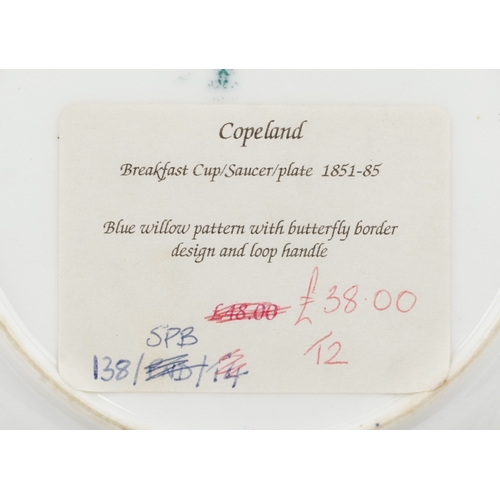 Copeland
Breakfast Cup/Saucer/plate 1851-85
Blue willow pattern with butterfly border
design and loop handle
£48.00 £38.00
SPB T2
138/